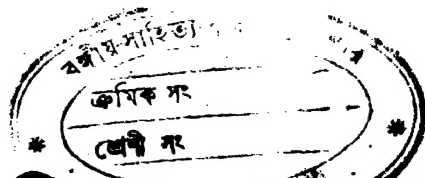 বঙ্গীয়-সাহিত্য
ক্রমিক সং
শ্রেণী সং